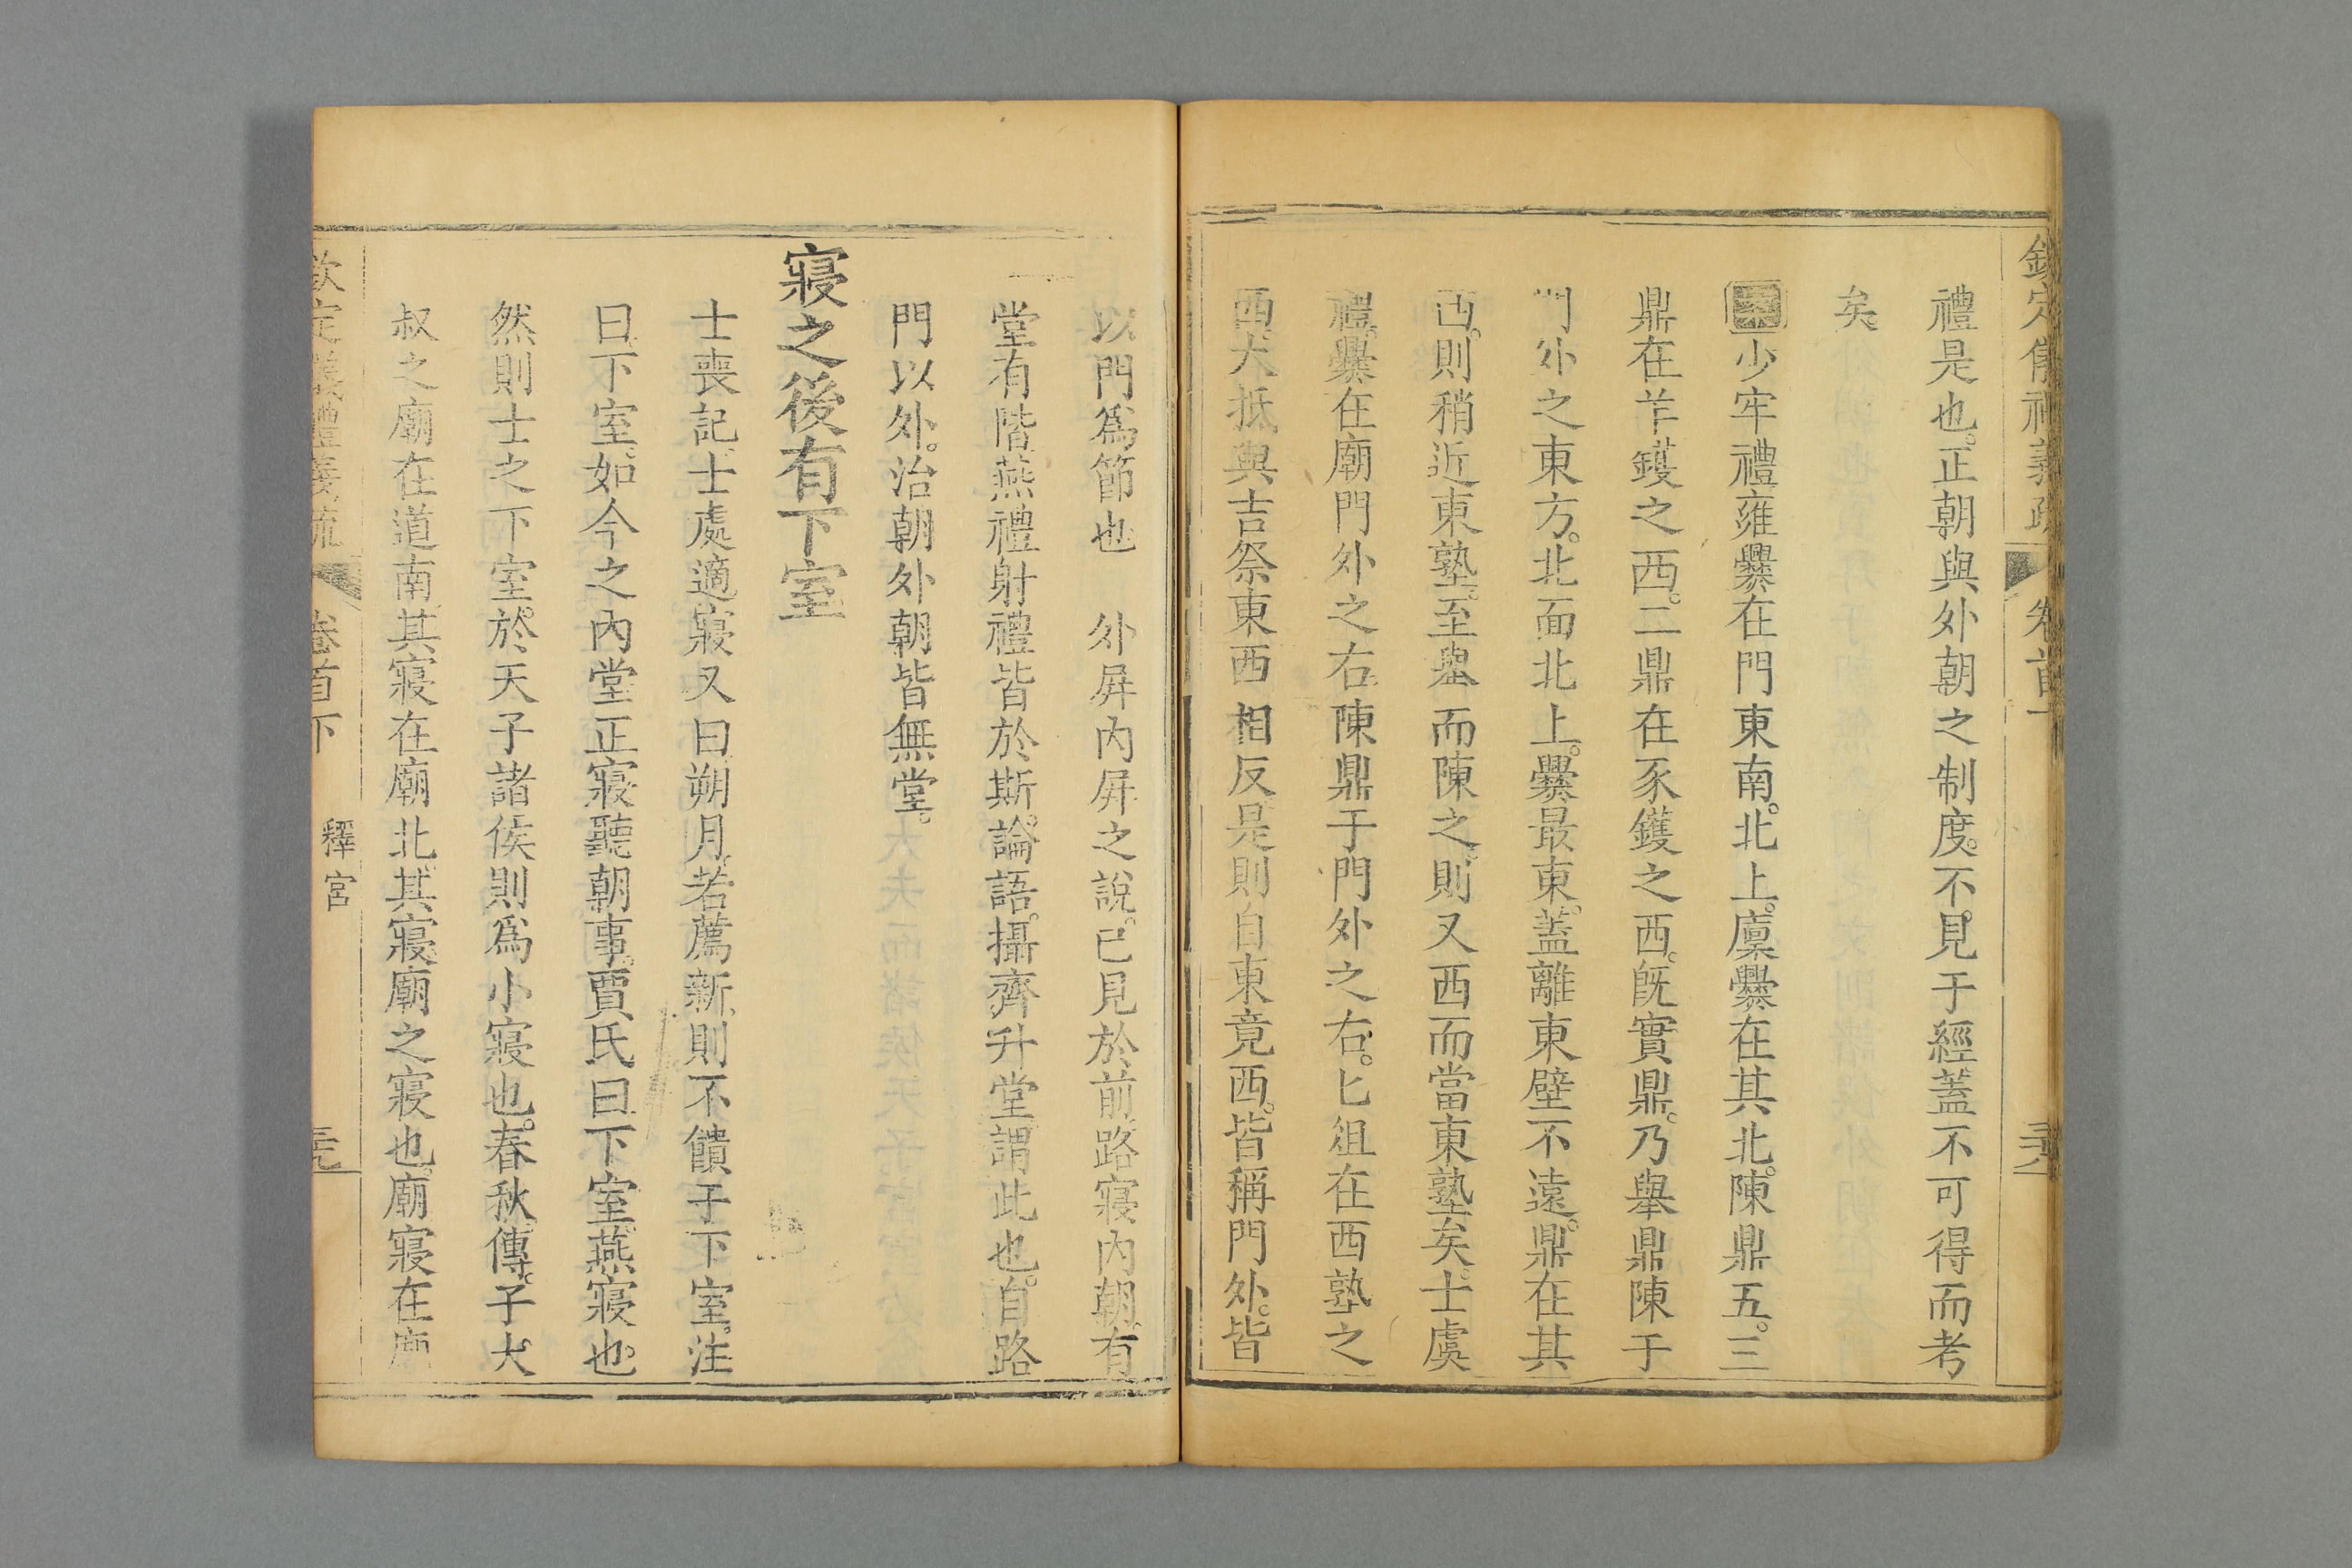 欽定儀禮義疏 卷首下 三六
禮是也。正朝與外朝之制度。不見于經。蓋不可得而考
矣。
案少牢禮。雍爨在門東南。北上。廩爨在其北。陳鼎五。三
鼎在羊鑊之西。二鼎在豕鑊之西。旣實鼎。乃舉鼎陳于
門外之東方。北面北上。爨最東。蓋離東壁不遠。鼎在其
西。則稍近東塾。至盥而陳之。則又西而當東塾矣。士虞
禮。爨在廟門外之右。陳鼎于門外之右。匕俎在西塾之
西。大抵與吉祭東西相反。是則自東竟西。皆稱門外。皆
以門爲節也 外屛內屛之說。已見於前。路寢內朝。有
堂有階。燕禮射禮皆於斯。論語。攝齊升堂。謂此也。自路
門以外。治朝外朝皆無堂。
寢之後有下室
士喪記。士處適寢。又曰。朔月。若薦新。則不饋于下室。注
曰。下室。如今之內堂。正寢聽朝事。賈氏曰。下室。燕寢也。
然則士之下室。於天子諸侯則爲小寢也。春秋傳。子大
叔之廟在道南。其寢在廟北。其寢。廟之寢也。廟寢在廟
欽定儀禮義疏 卷首下 釋宮 三九